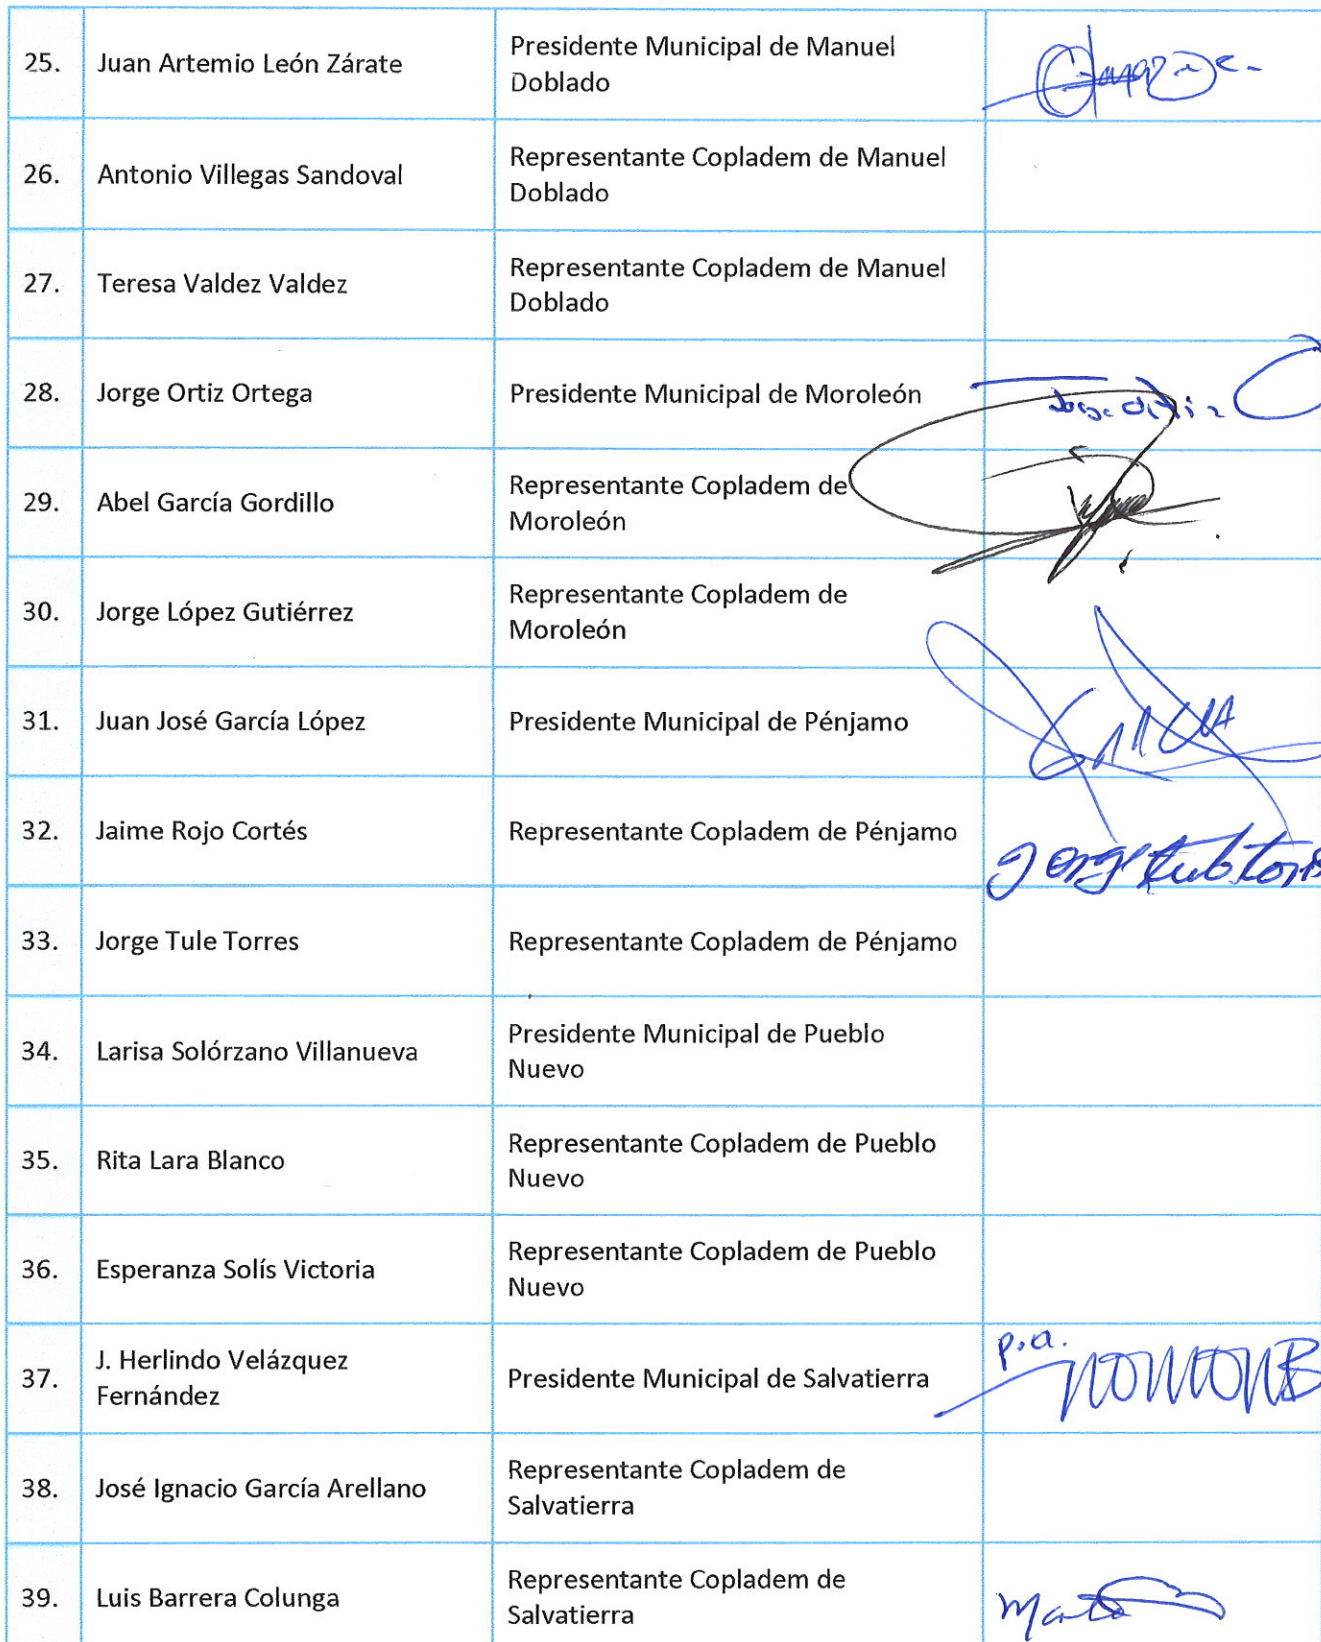 25. Juan Artemio León Zárate Presidente Municipal de Manuel
Doblado
26. Antonio Villegas Sandoval Representante Copladem de Manuel
Doblado
27. Teresa Valdez Valdez Representante Copladem de Manuel
Doblado
28. Jorge Ortiz Ortega Presidente Municipal de Moroleón
29. Abel García Gordillo Representante Copladem de
Moroleón
30. Jorge López Gutiérrez Representante Copladem de
Moroleón
31. Juan José García López Presidente Municipal de Pénjamo
32. Jaime Rojo Cortés Representante Copladem de Pénjamo
33. Jorge Tule Torres Representante Copladem de Pénjamo
34. Larisa Solórzano Villanueva Presidente Municipal de Pueblo
Nuevo
35. Rita Lara Blanco Representante Copladem de Pueblo
Nuevo
36. Esperanza Solís Victoria Representante Copladem de Pueblo
Nuevo
p.a.
37. J. Herlindo Velázquez
Fernández
Presidente Municipal de Salvatierra
38. José Ignacio García Arellano Representante Copladem de
Salvatierra
39. Luis Barrera Colunga Representante Copladem de
Salvatierra